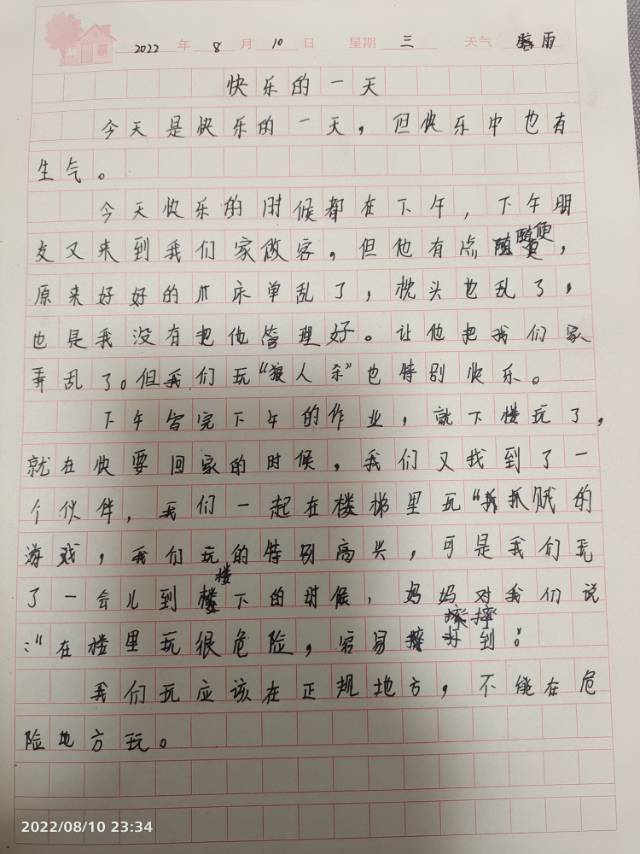 2022 年 8 月 10 日 星期 三 天气 雨
快乐的一天
今天是快乐的一天，但快乐中也有
生气。
今天快乐的时候都在下午，下午朋
友又来到我们家做客，但他有点随便，
原来好好的爪床单乱了，枕头也乱了，
也是我没有把他管理好。让他把我们家
弄乱了。但我们玩“狼人杀”也特别快乐。
下午写完下午的作业，就下楼玩了，
就在快要回家的时候，我们又找到了一
个伙伴，我们一起在楼梯里玩“我抓贼的
游戏，我们玩的特别高兴，可是我们玩
了一会儿到楼下的时候，妈妈对我们说
：“在楼里玩很危险，容易摔到。”
我们玩应该在正规地方，不能在危
险地方玩。
2022/08/10 23:34